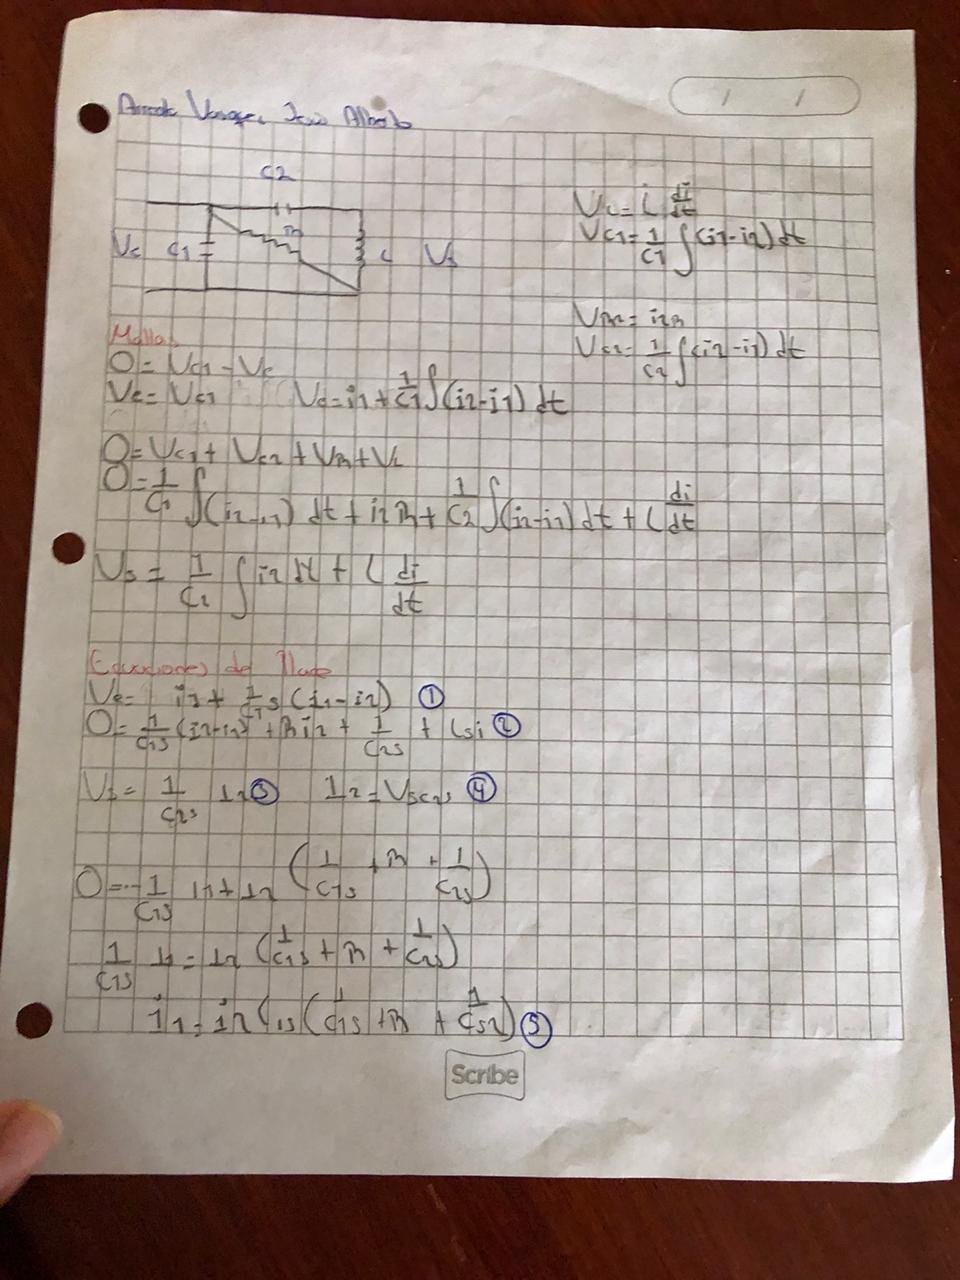 C2
Ve C1 R L Vs
VL = L di/dt
VC1 = 1/C1 ∫(i1-i2) dt
VR = i2R
VC2 = 1/C2 ∫(i2-i1) dt
Mallas
0 = VC1 - Ve
Ve = VC1 Ve = i1 + 1/C1 ∫(i2-i1) dt
0 = VC1 + VC2 + VR + VL
0 = 1/C1 ∫(i2-i1) dt + i2 R + 1/C2 ∫(i2-i1) dt + L di/dt
Vs = 1/C2 ∫ i2 dt + L di/dt
Ecuaciones de
Ve = i1 + 1/C1s (i1-i2) ①
0 = 1/C1s (i2-i1) + R i2 + 1/C2s + Lsi ②
Vs = 1/C2s I2 ③ I2 = VsC2s ④
0 = -1/C1s I1 + I2 (1/C1s + R + 1/C2s)
1/C1s I1 = I2 (1/C1s + R + 1/C2s)
i1 = i2 C1s (1/C1s + R + 1/Cs2) ⑤
Scribe